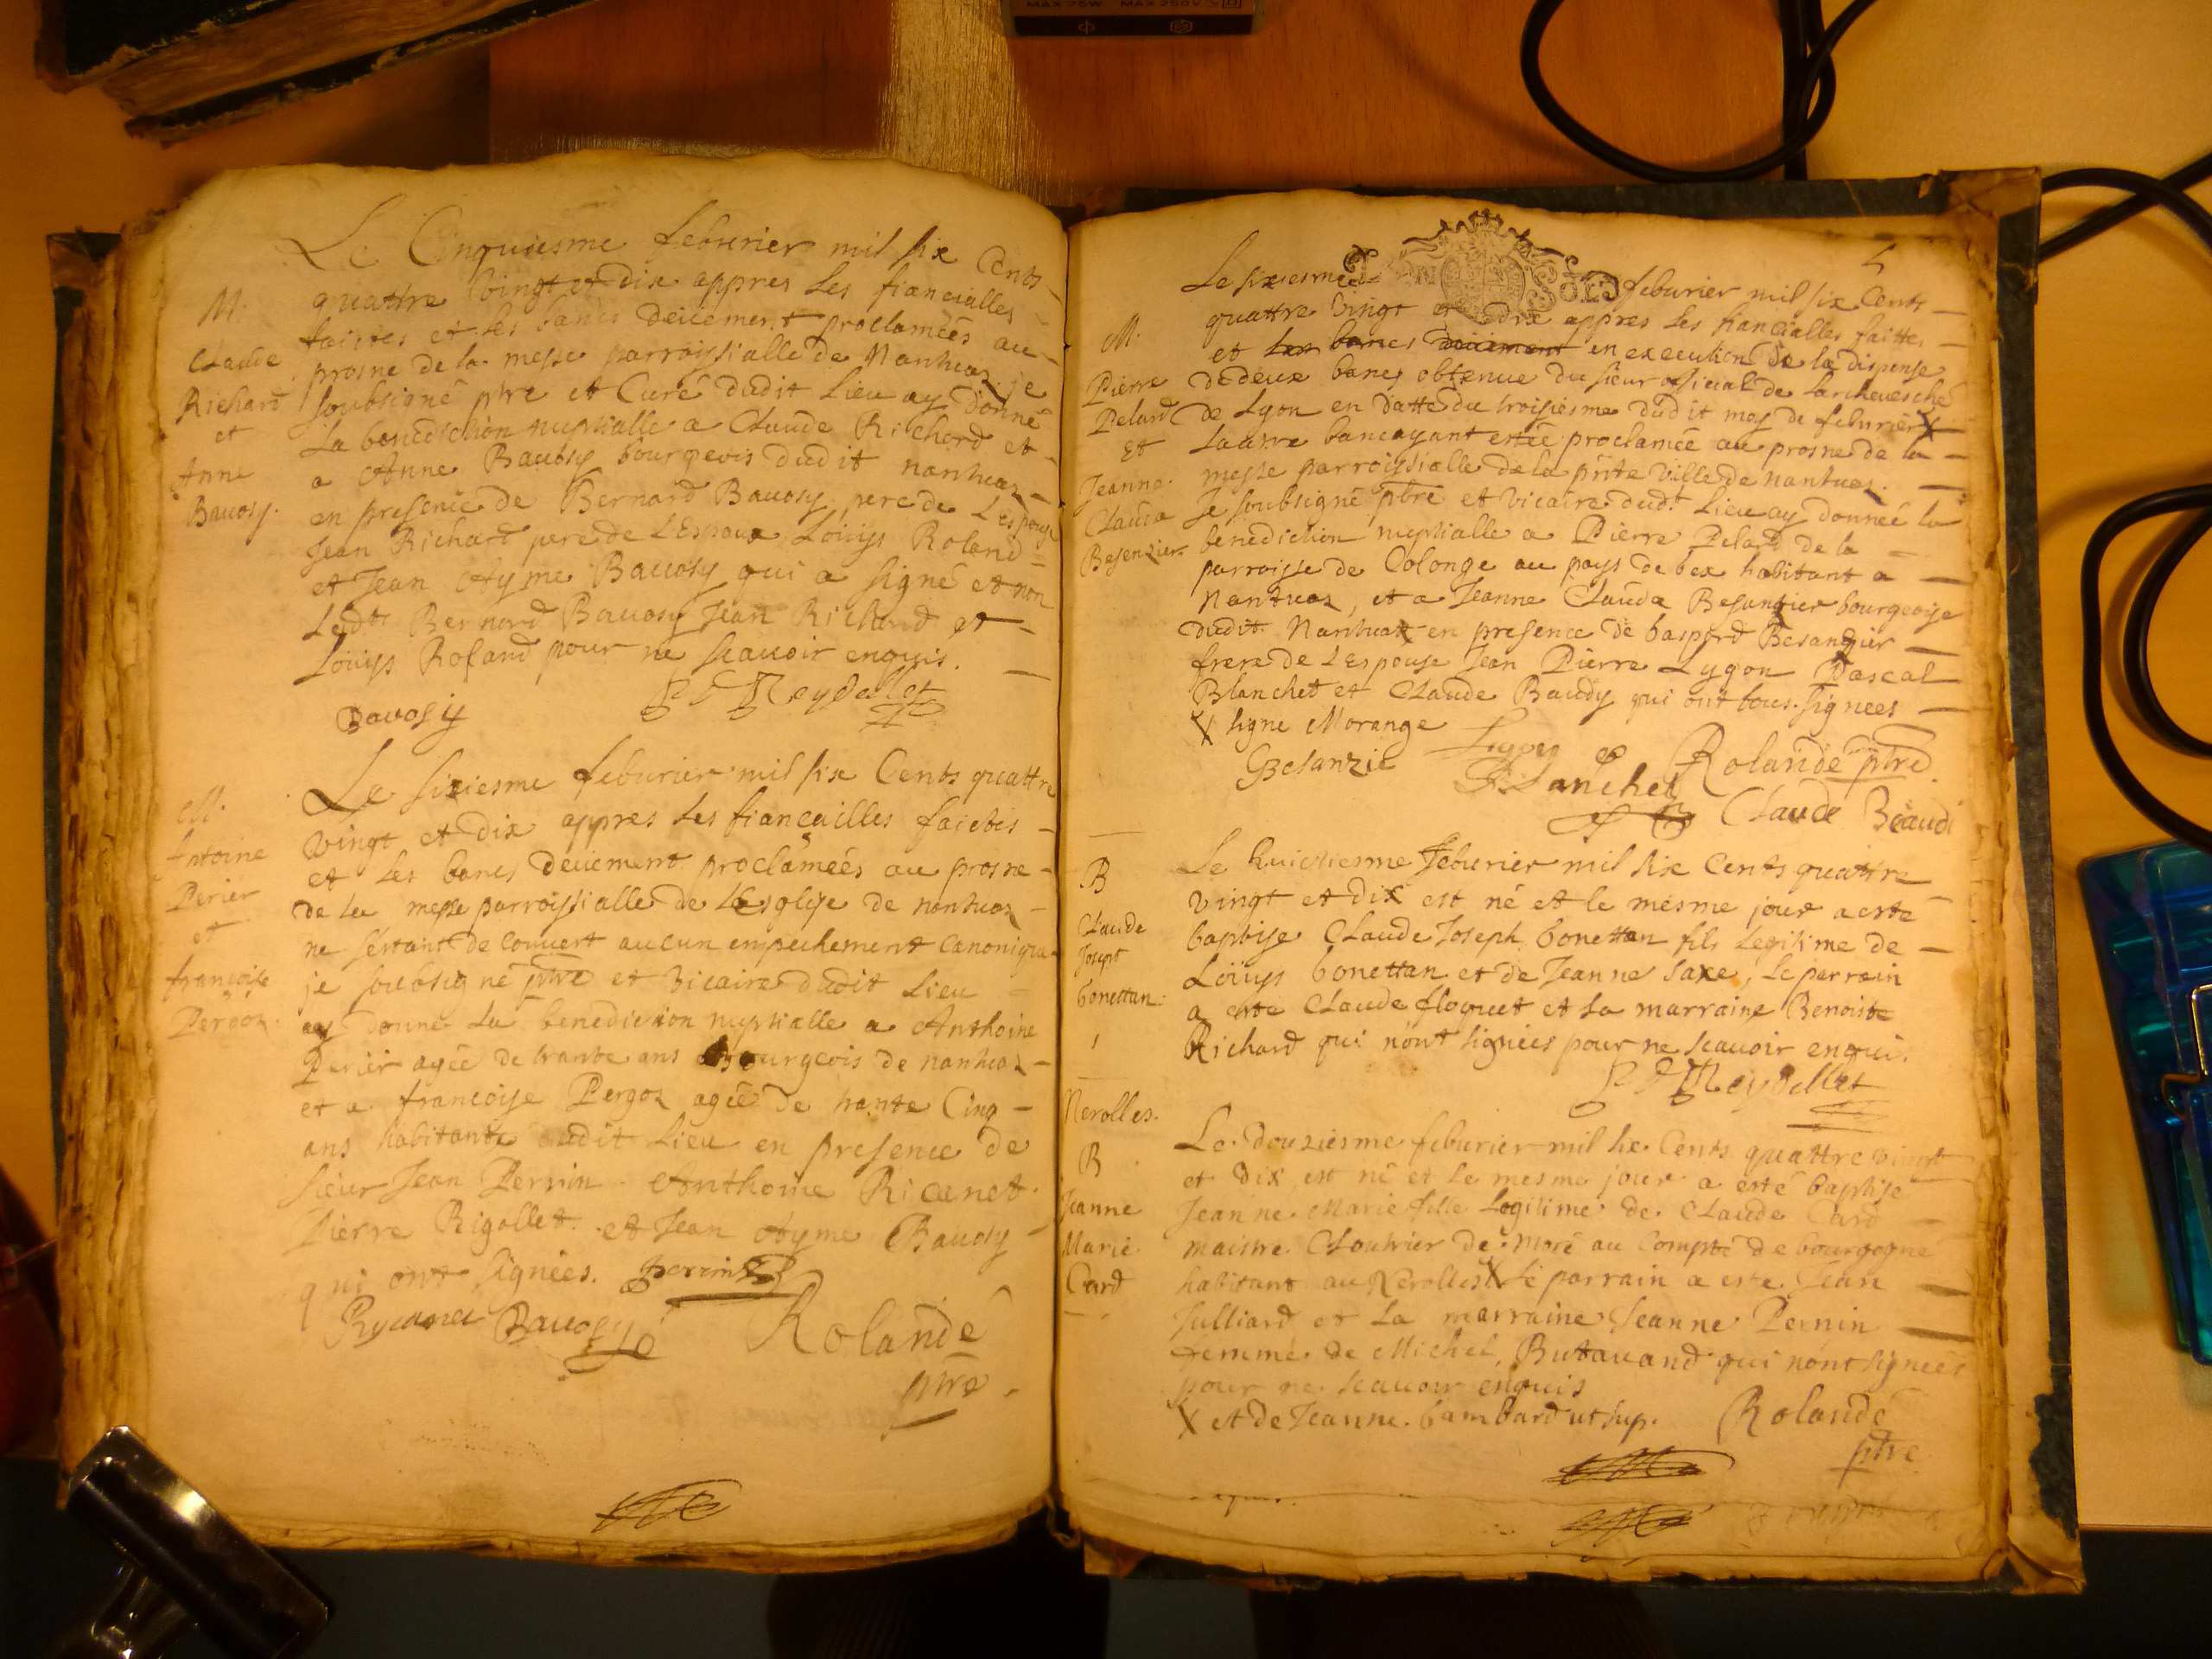 Le Cinquiesme feburier mil six Cents
quattre vingt et dix appres les fiancialles
faictes et les bancs deuement proclamées au
prosne de la messe parroissialle de Nantuaz je
soubsigné ptre et Curé dudit Lieu ay donné
la benediction nuptialle a Claude Richard et
a Anne Bauosy bourgeois dudit nantuaz
en presence de Bernard Bauosy pere de Lespouse
Jean Richard pere de LEspoux Loüys Roland
et Jean Ayme Bauosy qui a signé et non
Lesdts Bernard Bauosy Jean Richard et
Loüys Roland pour ne scauoir enquis.
M.
Claude
Richard
et
Anne
Bauosy.
Bauosy
Reydellet
Le sixiesme feburier mil six Cents quattre
vingt et dix appres les fiançailles faictes
et les bancs deuement proclamées au prosne
de la messe parroissialle de LEsglise de nantuaz
ne sestant de couuert aucun empechement canonique
je soubsigné ptre et Vicaire dudit Lieu
ay donné la benediction nuptialle a Anthoine
Perier agée de trante ans bourgeois de nantuaz
et a françoise Pergoz agée de trante Cinq
ans habitante audit Lieu en presence de
sieur Jean Perrin Anthoine Ricanet
Pierre Rigollet et Jean Ayme Bauosy
qui ont signées. Perrin
M.
Antoine
Perier
et
françoise
Pergoz.
Rycanet Bauosy Rolandé
ptre
Le sixiesme feburier mil six Cents
quattre vingt et dix appres les fiancialles faittes
et les bancs deuement en execution de la dispense
de deux bancs obtenue du sieur official de Larcheuesché
de Lyon en datte du troisiesme dudit moy de feburier X
Lautre banc ayant estée proclamée au prosne de la
messe parroissialle de la pnte Ville de nantuaz.
Je soubsigné ptre et vicaire dudt Lieu ay donnée la
benediction nuptialle a Pierre Pelard de la
parroisse de Colonge au pays de Gex habitant a
Nantuaz, et a Jeanne Clauda Besanzier bourgeoise
dudit Nantuaz en presence de Gaspard Besanzier
frere de LEspouse Jean Pierre Lygon Pascal
Blanchet et Claude Baudy qui ont tous signees
X signe Morange
M.
Pierre
Pelard
Et
Jeanne
Clauda
Besenzier
Besanzie Lygon Rolandé ptre
Blanchet Claude Beaudi
Le huictiesme feburier mil six Cents quattre
vingt et dix est né et le mesme jour a este
baptise Claude Joseph Gonettan fils legitime de
Loüys Gonettan et de Jeanne Saxe, le parrain
a este Claude floquet et la marraine Benoiste
Richard qui nont signées pour ne scauoir enqui.
B
Claude
Josept
Gonettan
Reydellet
Nerolles.
Le douziesme feburier mil six Cents quattre vingt
et dix est né et le mesme jour a esté baptise
Jeanne Marie fille legitime de Claude Card
maistre Cloutrier de moré au Compté de bourgogne
habitant au Nerolles X le parrain a este Jean
Julliard et la marraine Jeanne Pernin
femme de Michel Butauand qui nont signeés
pour ne scauoir enquis
X et de Jeanne Gambard ut sup. Rolandé
ptre
B
Jeanne
Marie
Card